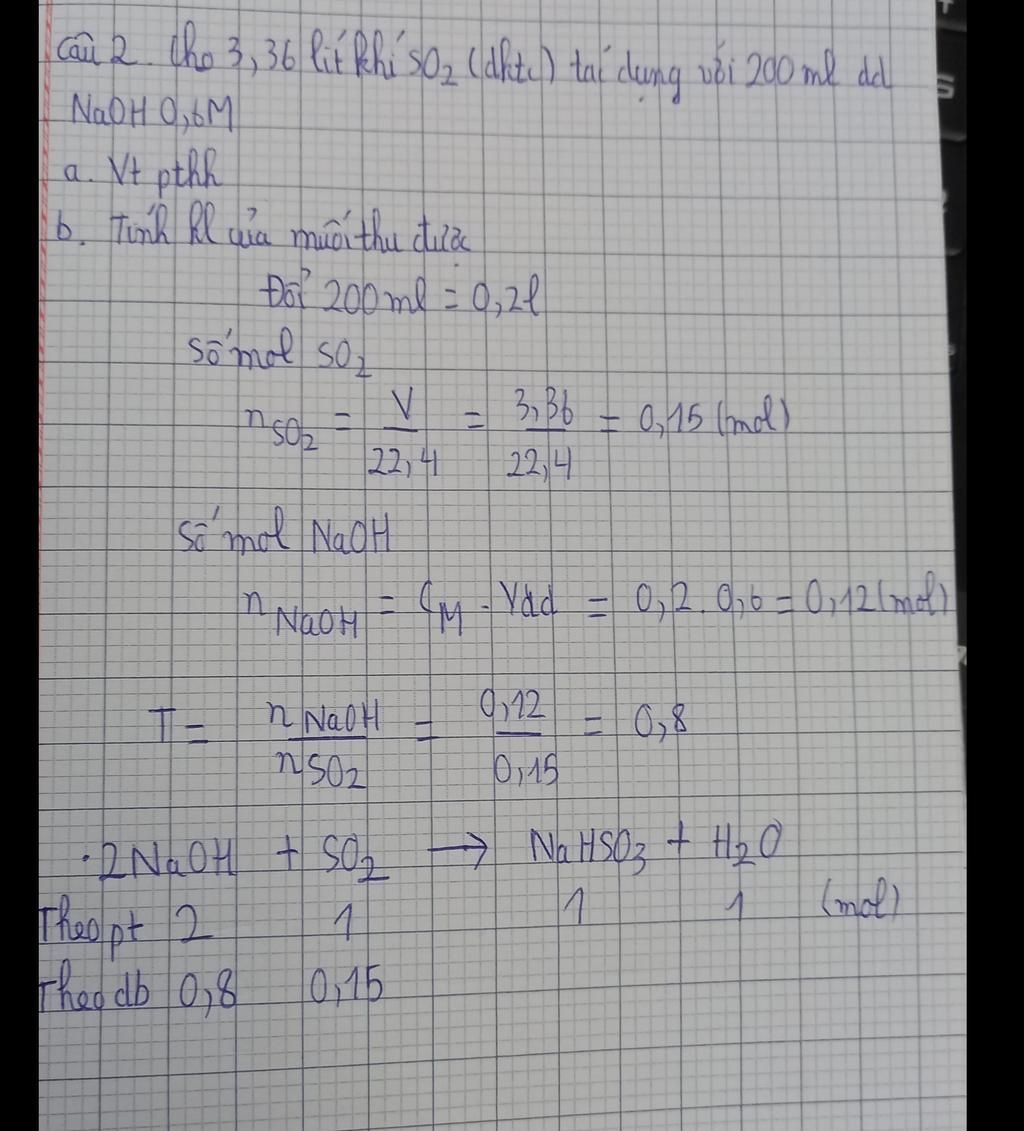 Câu 2. Cho 3,36 lít khí SO2 (đktc) tác dụng với 200 ml dd
NaOH 0,6M
a. Vt pthh
b. Tính kl của muối thu được
Đổi 200 ml = 0,2l
Số mol SO2
nSO2 = V/22,4 = 3,36/22,4 = 0,15 (mol)
Số mol NaOH
nNaOH = CM . Vdd = 0,2 . 0,6 = 0,12 (mol)
T = nNaOH/nSO2 = 0,12/0,15 = 0,8
. 2NaOH + SO2 → NaHSO3 + H2O
Theo pt 2 1 1 1 (mol)
Theo db 0,8 0,15